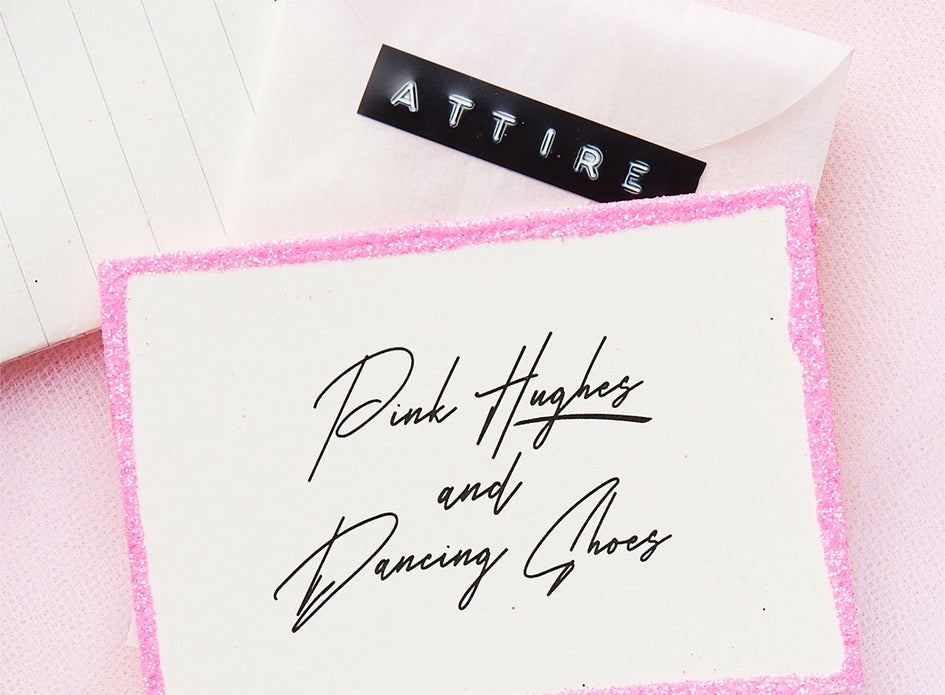 ATTIRE
Pink Hughes
and
Dancing Shoes